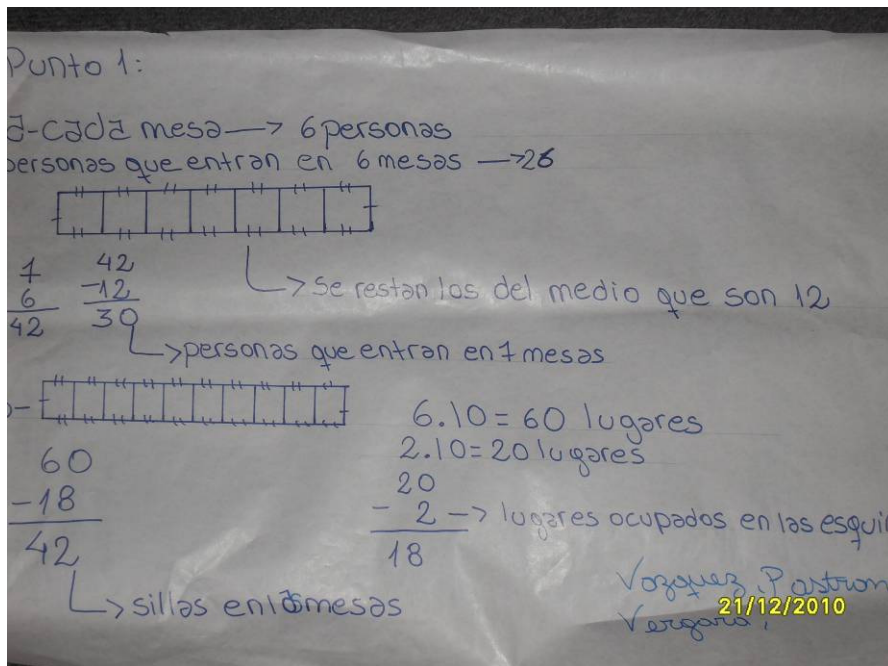 Punto 1:
a-cada mesa → 6 personas
personas que entran en 6 mesas → 26
7
6
42
42
-12
30
→ se restan los del medio que son 12
→ personas que entran en 7 mesas
60
-18
42
→ sillas en las mesas
6.10 = 60 lugares
2.10 = 20 lugares
20
- 2 → lugares ocupados en las esqui
18
Vazquez, Pastran
Vergara,
21/12/2010